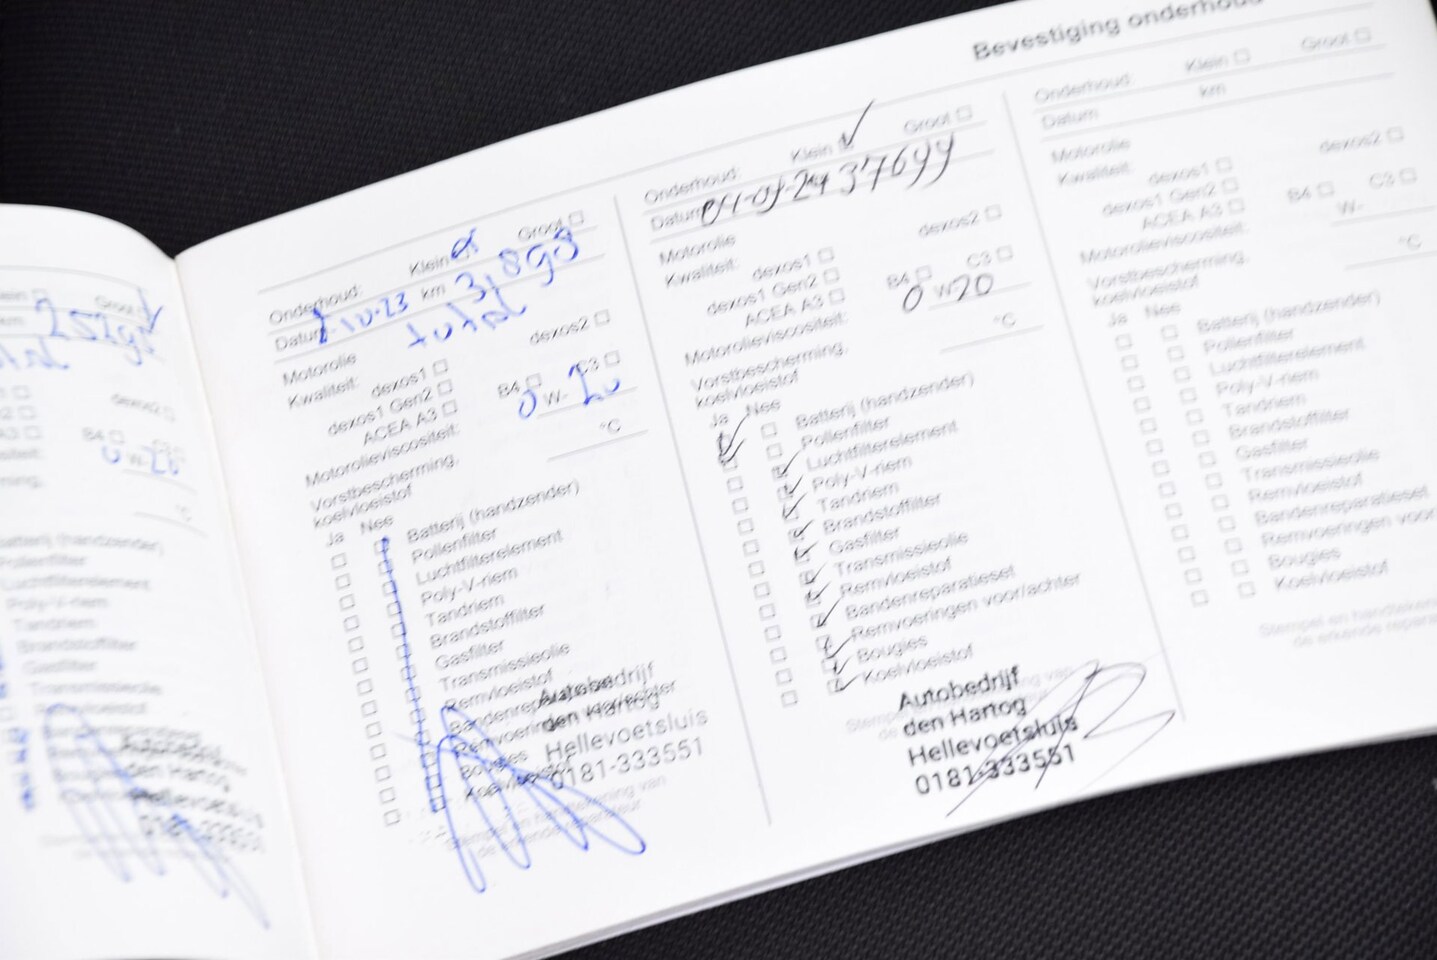 Bevestiging onderhoud
Groot
25291
dexos2
B4
0 20
°C
Batterij (handzender)
Pollenfilter
Luchtfilterelement
Poly-V-riem
Tandriem
Brandstoffilter
Gasfilter
Transmissieolie
den Hartog
Onderhoud: Klein Groot
Datum 10-23 km 31898
total
Motorolie
Kwaliteit: dexos1 dexos2
dexos1 Gen2
ACEA A3 B4 C3
Motorolieviscositeit: 0 W- 20
Vorstbescherming,
koelvloeistof °C
Ja Nee
Batterij (handzender)
Pollenfilter
Luchtfilterelement
Poly-V-riem
Tandriem
Brandstoffilter
Gasfilter
Transmissieolie
Remvloeistof
Bandenreparatieset
Remvoeringen voor/achter
Bougies
Koelvloeistof
Autobedrijf
den Hartog
Hellevoetsluis
0181-333551
Stempel en handtekening van
de erkende reparateur
Onderhoud: Klein Groot
Datum 37699
Motorolie
Kwaliteit: dexos1 dexos2
dexos1 Gen2
ACEA A3 B4 C3
Motorolieviscositeit: 0 W- 20
Vorstbescherming,
koelvloeistof °C
Ja Nee
Batterij (handzender)
Pollenfilter
Luchtfilterelement
Poly-V-riem
Tandriem
Brandstoffilter
Gasfilter
Transmissieolie
Remvloeistof
Bandenreparatieset
Remvoeringen voor/achter
Bougies
Koelvloeistof
Autobedrijf
den Hartog
Hellevoetsluis
0181-333551
Onderhoud: Klein Groot
Datum km
Motorolie
Kwaliteit: dexos1 dexos2
dexos1 Gen2
ACEA A3 B4 C3
Motorolieviscositeit: W-
Vorstbescherming,
koelvloeistof °C
Ja Nee
Batterij (handzender)
Pollenfilter
Luchtfilterelement
Poly-V-riem
Tandriem
Brandstoffilter
Gasfilter
Transmissieolie
Remvloeistof
Bandenreparatieset
Remvoeringen voor
Bougies
Koelvloeistof
Stempel en
de erkende